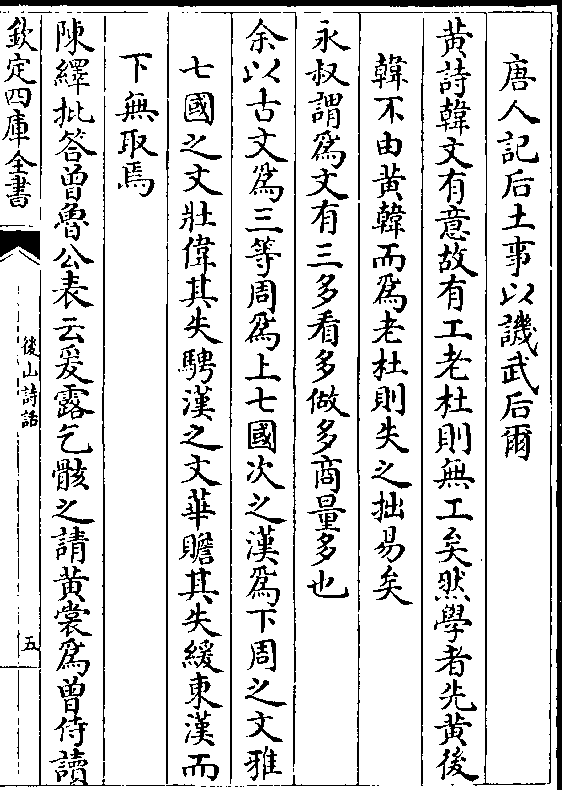 唐人記后土事以譏武后爾
黃詩韓文有意故有工老杜則無工矣然學者先黃後
韓不由黃韓而爲老杜則失之拙易矣
永叔謂爲文有三多看多做多商量多也
余以古文爲三等周爲上七國次之漢爲下周之文雅
七國之文壯偉其失騁漢之文華贍其失緩東漢而
下無取焉
陳繹批答曾魯公表云爰露乞骸之請黃裳爲曾侍讀
欽定四庫全書
後山詩話
五